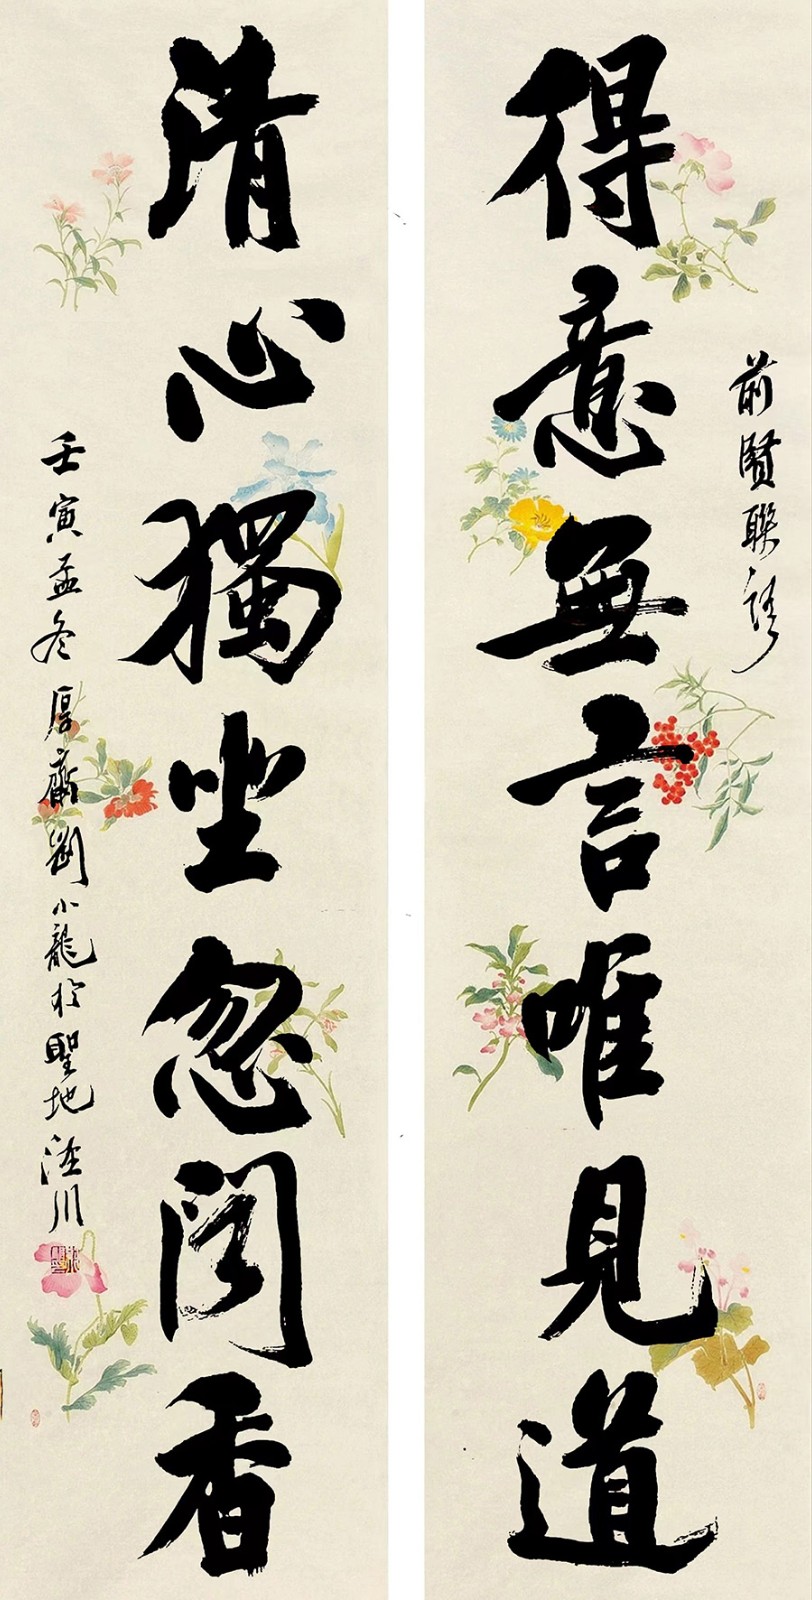 得意無言唯見道
前賢聯語
清心獨坐忽聞香
壬寅孟冬厚齋劉小龍於聖地涇川